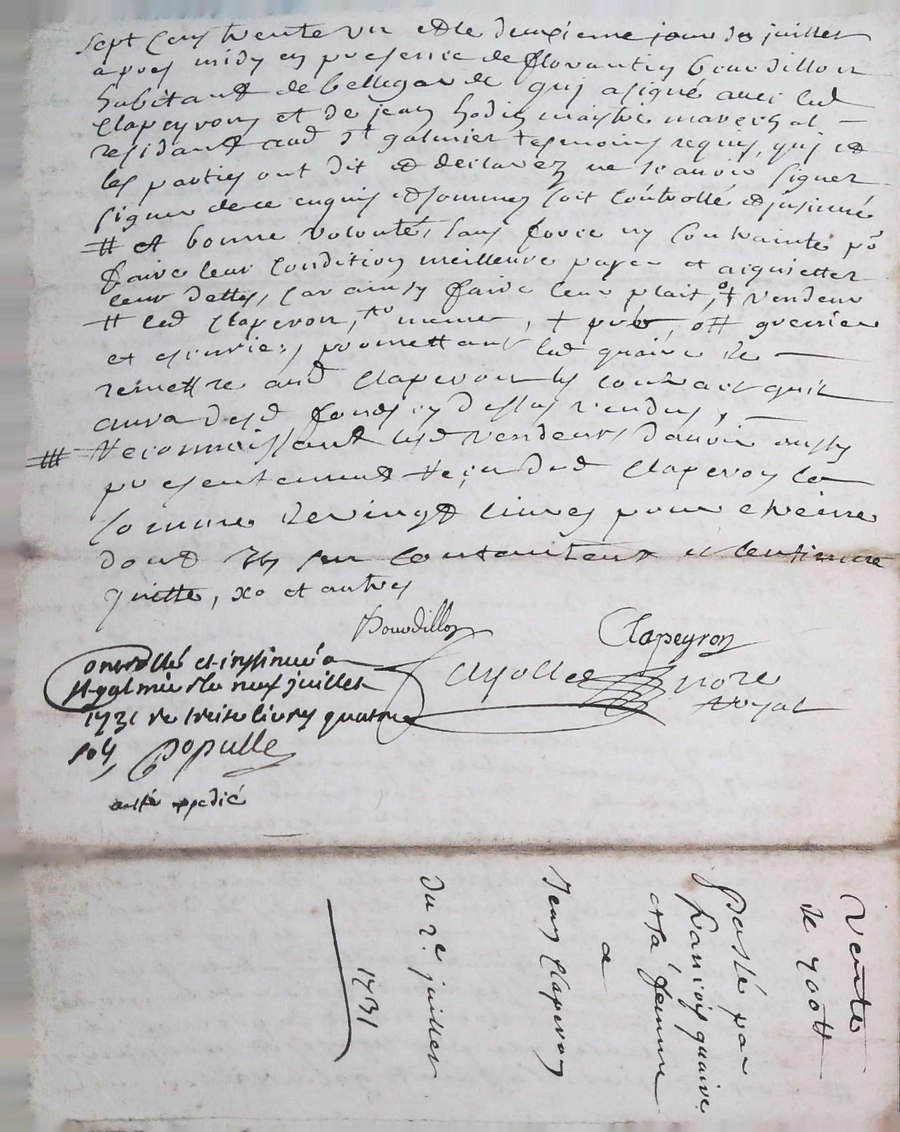 Sept Cens trente un et le deuxieme jour de juillet
apres midy en presence de florantin bourdillon
habitant de bellegarde qui a signé avec led
Clapeyron et de jean hodin maistre mareschal
residant aud st galmier tesmoins requis, qui et
les parties ont dit et declarez ne scavoir signer
signer de ce enquis et sommes soit Controllé et jnsinué
# et bonne volonté, sans force ny Contrainte po
faire leur Condition meilleure payer et acquietter
leur dettes, Car ainsy faire leur plait, vendeur
# led Claperon,
et promettant led quaire de
remettre aud Claperon les Contracts quil
aura desd fonds cy dessus vendus,
Reconnaissant lesd vendeurs davoir aussy
presentement Reçu dud Claperon la
somme de vingt livres pour etreine
dont Ils sen Contantent et len tienne
quitte, xo et autres
Bourdillon Clapeyron
Controllé et insinué a
st galmier le neuf juillet
1731 re treise livres quatre
sols
Populle
nore
royal
expedié
Vente
de 900 tt
Passé par
francois quaire
et sa femme
a
Jean Claperon
Du 2e juillet
1731